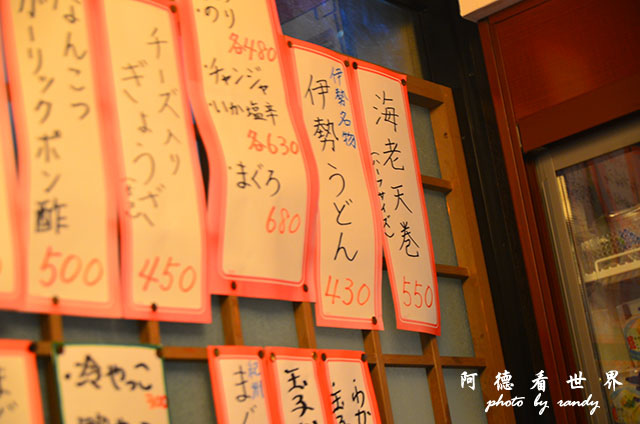 なんこつ
ガーリックポン酢
500
チーズ入り
ぎょうざ
450
のり
各480
・チャンジャ
・いか塩辛
各630
・まぐろ
680
伊勢名物
伊勢うどん
430
海老天巻
(ハーフサイズ)
550
・冷やっこ
まぐ
玉子
わか
玉子
阿德看世界
photo by randy